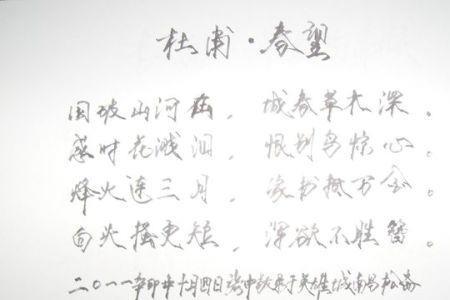 杜甫·春望
国破山河在,城春草木深。
感时花溅泪,恨别鸟惊心。
烽火连三月,家书抵万金。
白头搔更短,浑欲不胜簪。
二〇一一辛卯年十月四日于英雄城南昌